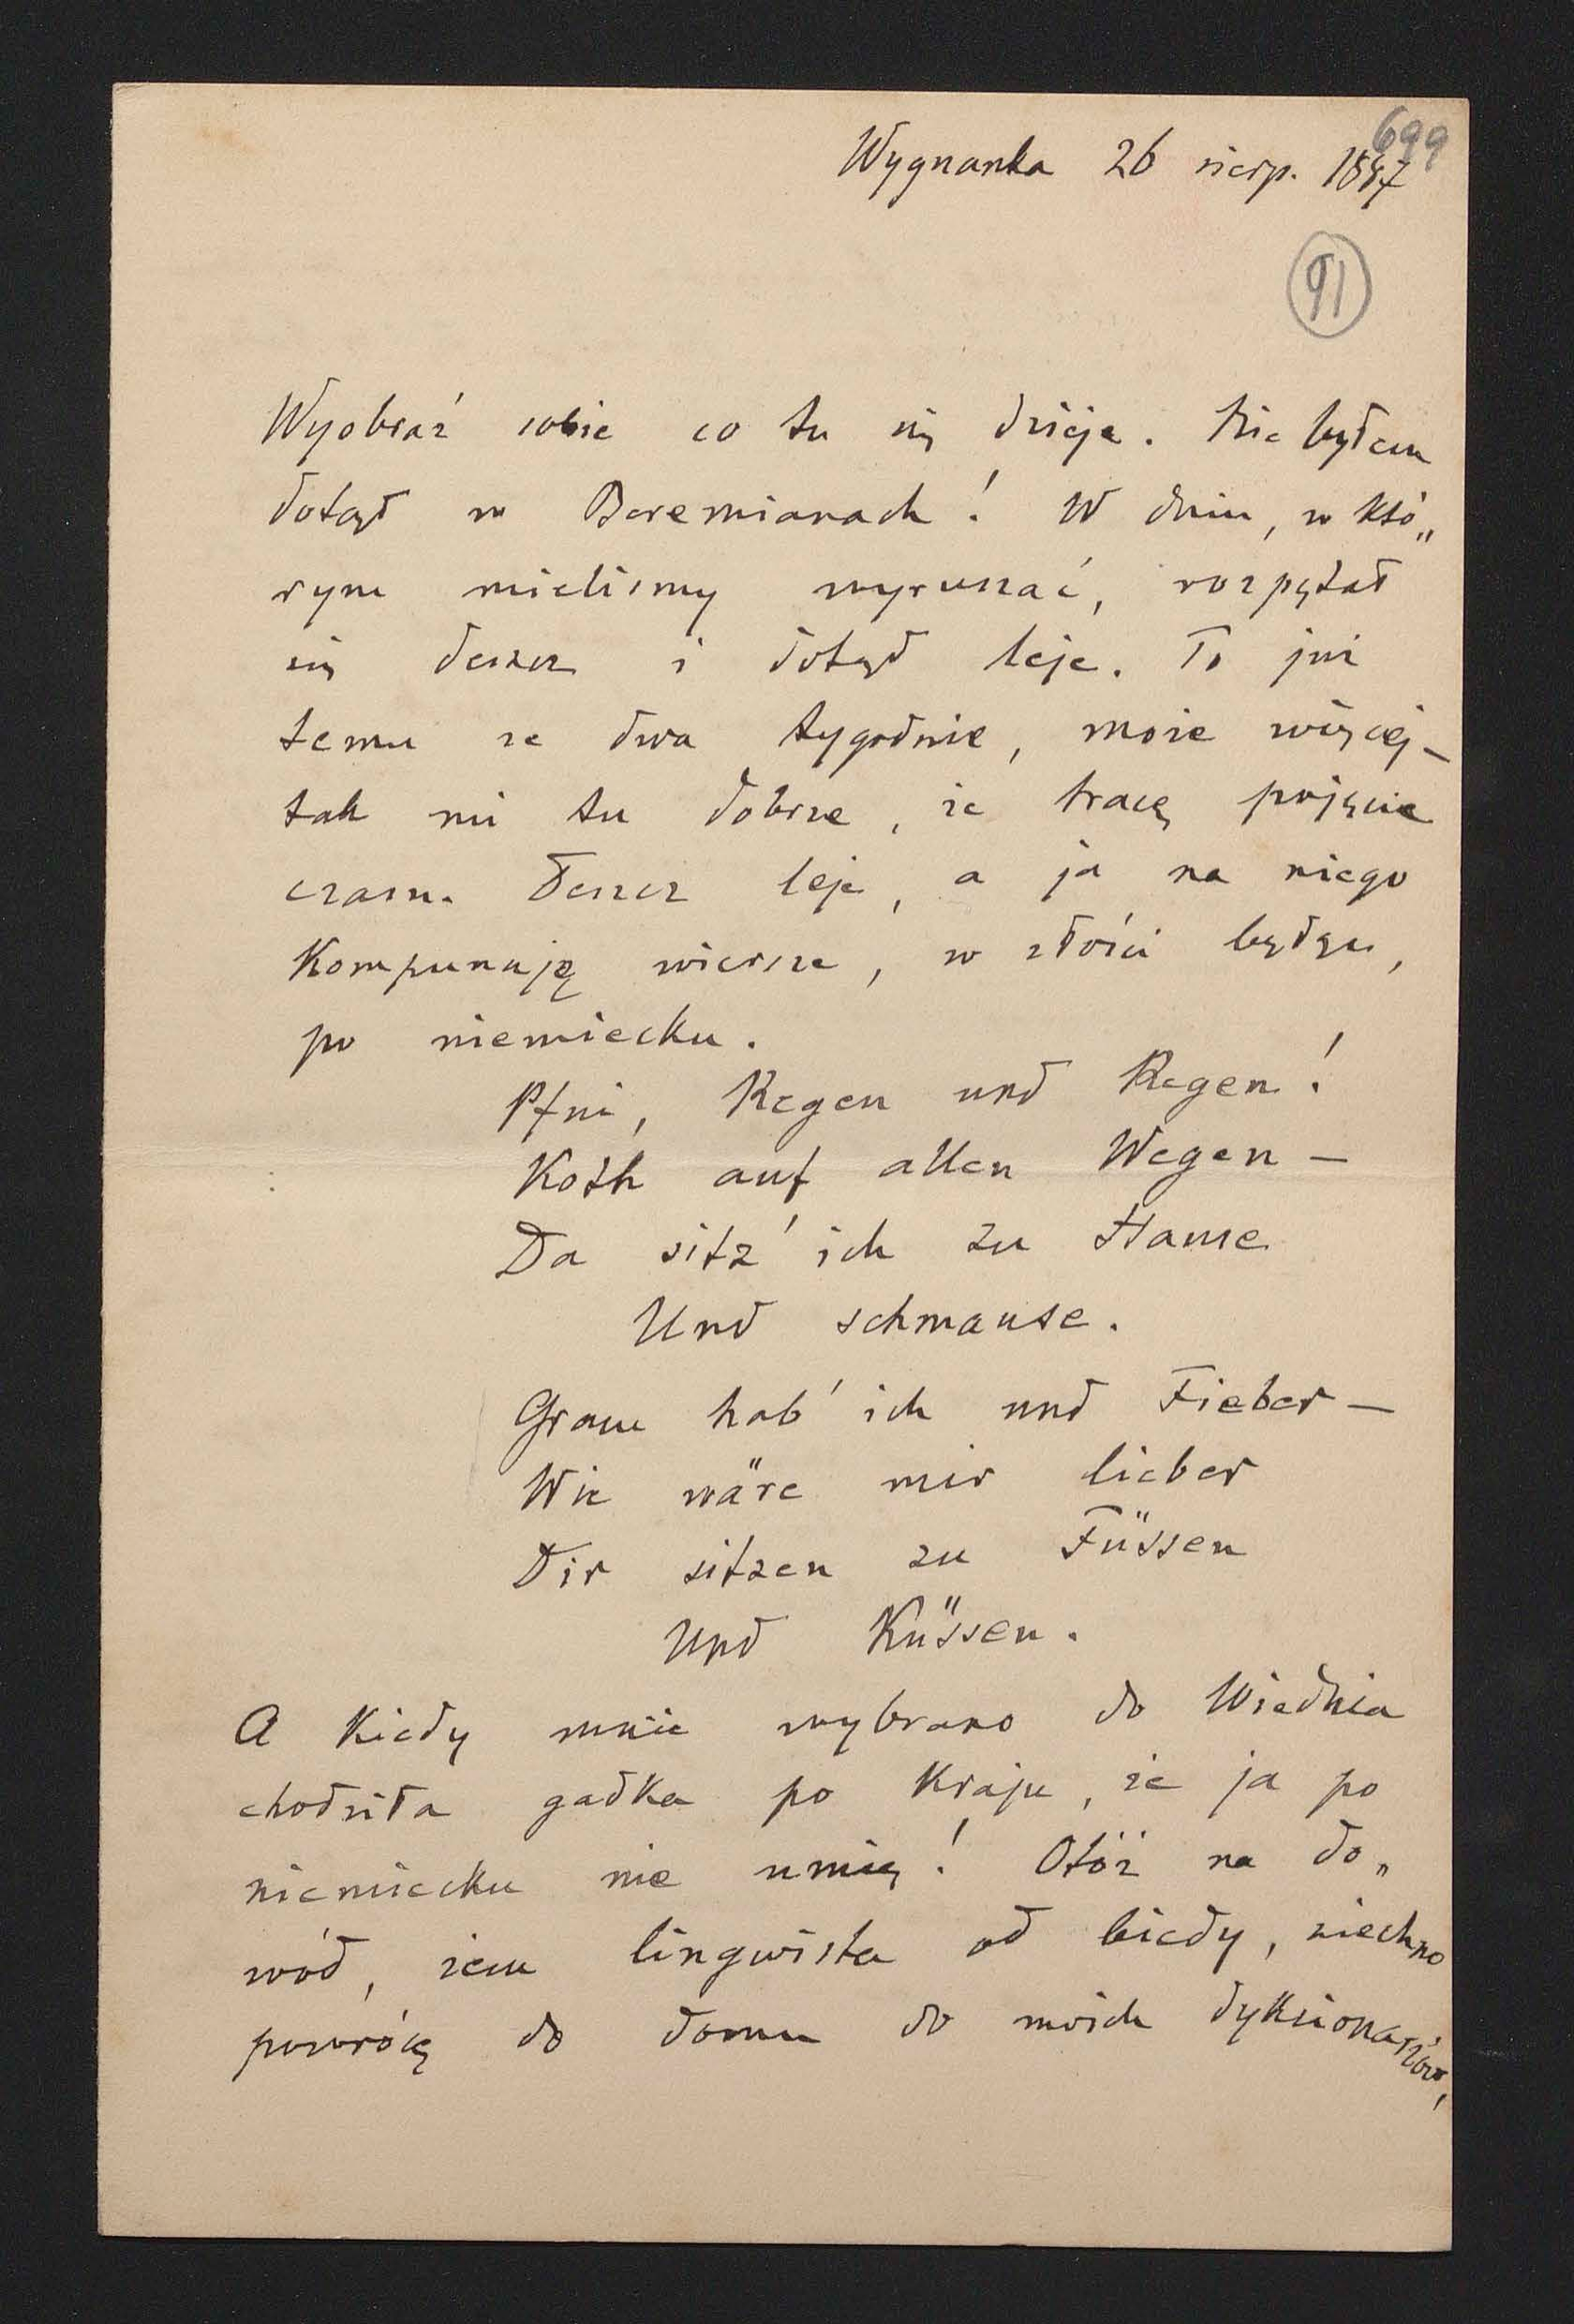 699
Wygnanka 26 sierp. 1897
91
Wyobraź sobie co tu się dzieje. Nie byłem
dotąd w Boremianach! W dniu, w któ„
rym mieliśmy wyruszać, rozpętał
się deszcz i dotąd leje. To już
temu ze dwa tygodnie, może więcej –
tak mi tu dobrze, że tracę pojęcie
czasu. Deszcz leje, a ja na niego
komponuję wiersze, w złości będąc,
po niemiecku.
Pfui, Regen und Regen!
Koth auf allen Wegen –
Da sitz' ich zu Hause
Und schmause.
Gram hab' ich und Fieber –
Wie wäre mir lieber
Dir sitzen zu Füssen
Und Küssen.
A kiedy mnie wybrano do Wiednia
chodziła gadka po kraju, że ja po
niemiecku nie umię! Otóż na do„
wód, żem lingwista od biedy, niechno
powrócę do domu do moich dykcionarzów,